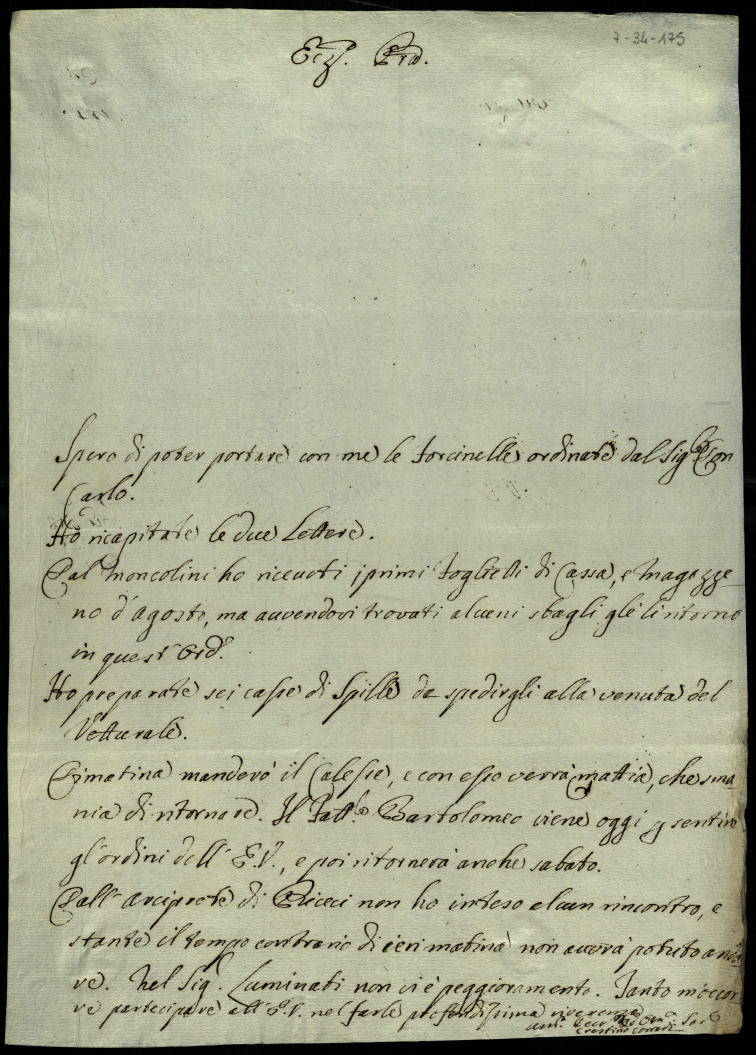 7-34-175
Ecz.ª Prõn.
Spero di poter portare con me le forcinelle ordinate dal Sig.r Don
Carlo.
Ho ricapitate le due Lettere.
Dal Moncolini ho riceuti i primi foglietti di Cassa, e Magazze
no d'Agosto, ma avvendovi trovati alcuni sbagli glé li ritorno
in quest'Ord.º
Ho preparate sei casse di Spille da spedirgli alla venuta del
Vetturale.
Dimatina manderò il Calesse, e con esso verrà Mattia, che sma
nia di ritornare. Il Fatt.e Bartolomeo viene oggi p sentire
gl'ordini dell'E.V., e poi ritornerà anche sabato.
Dall'Arciprete di non ho inteso alcun rincontro, e
stante il tempo contrario di ieri matina non avrà potuto anda
re. Nel Sig.r Luminati non vi è peggioramento. Tanto m'occor
re partecipare all'E.V. nel farle profondissima riverenza
Corradi